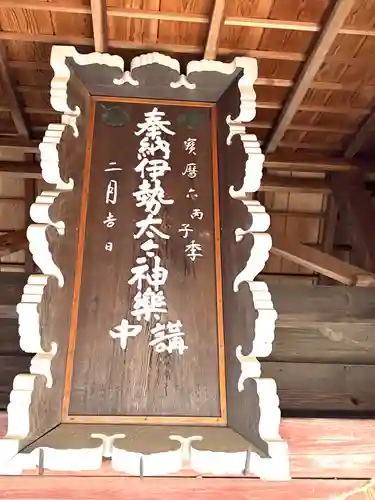 寳暦六丙子季
奉納伊勢太々神樂講中
二月吉日